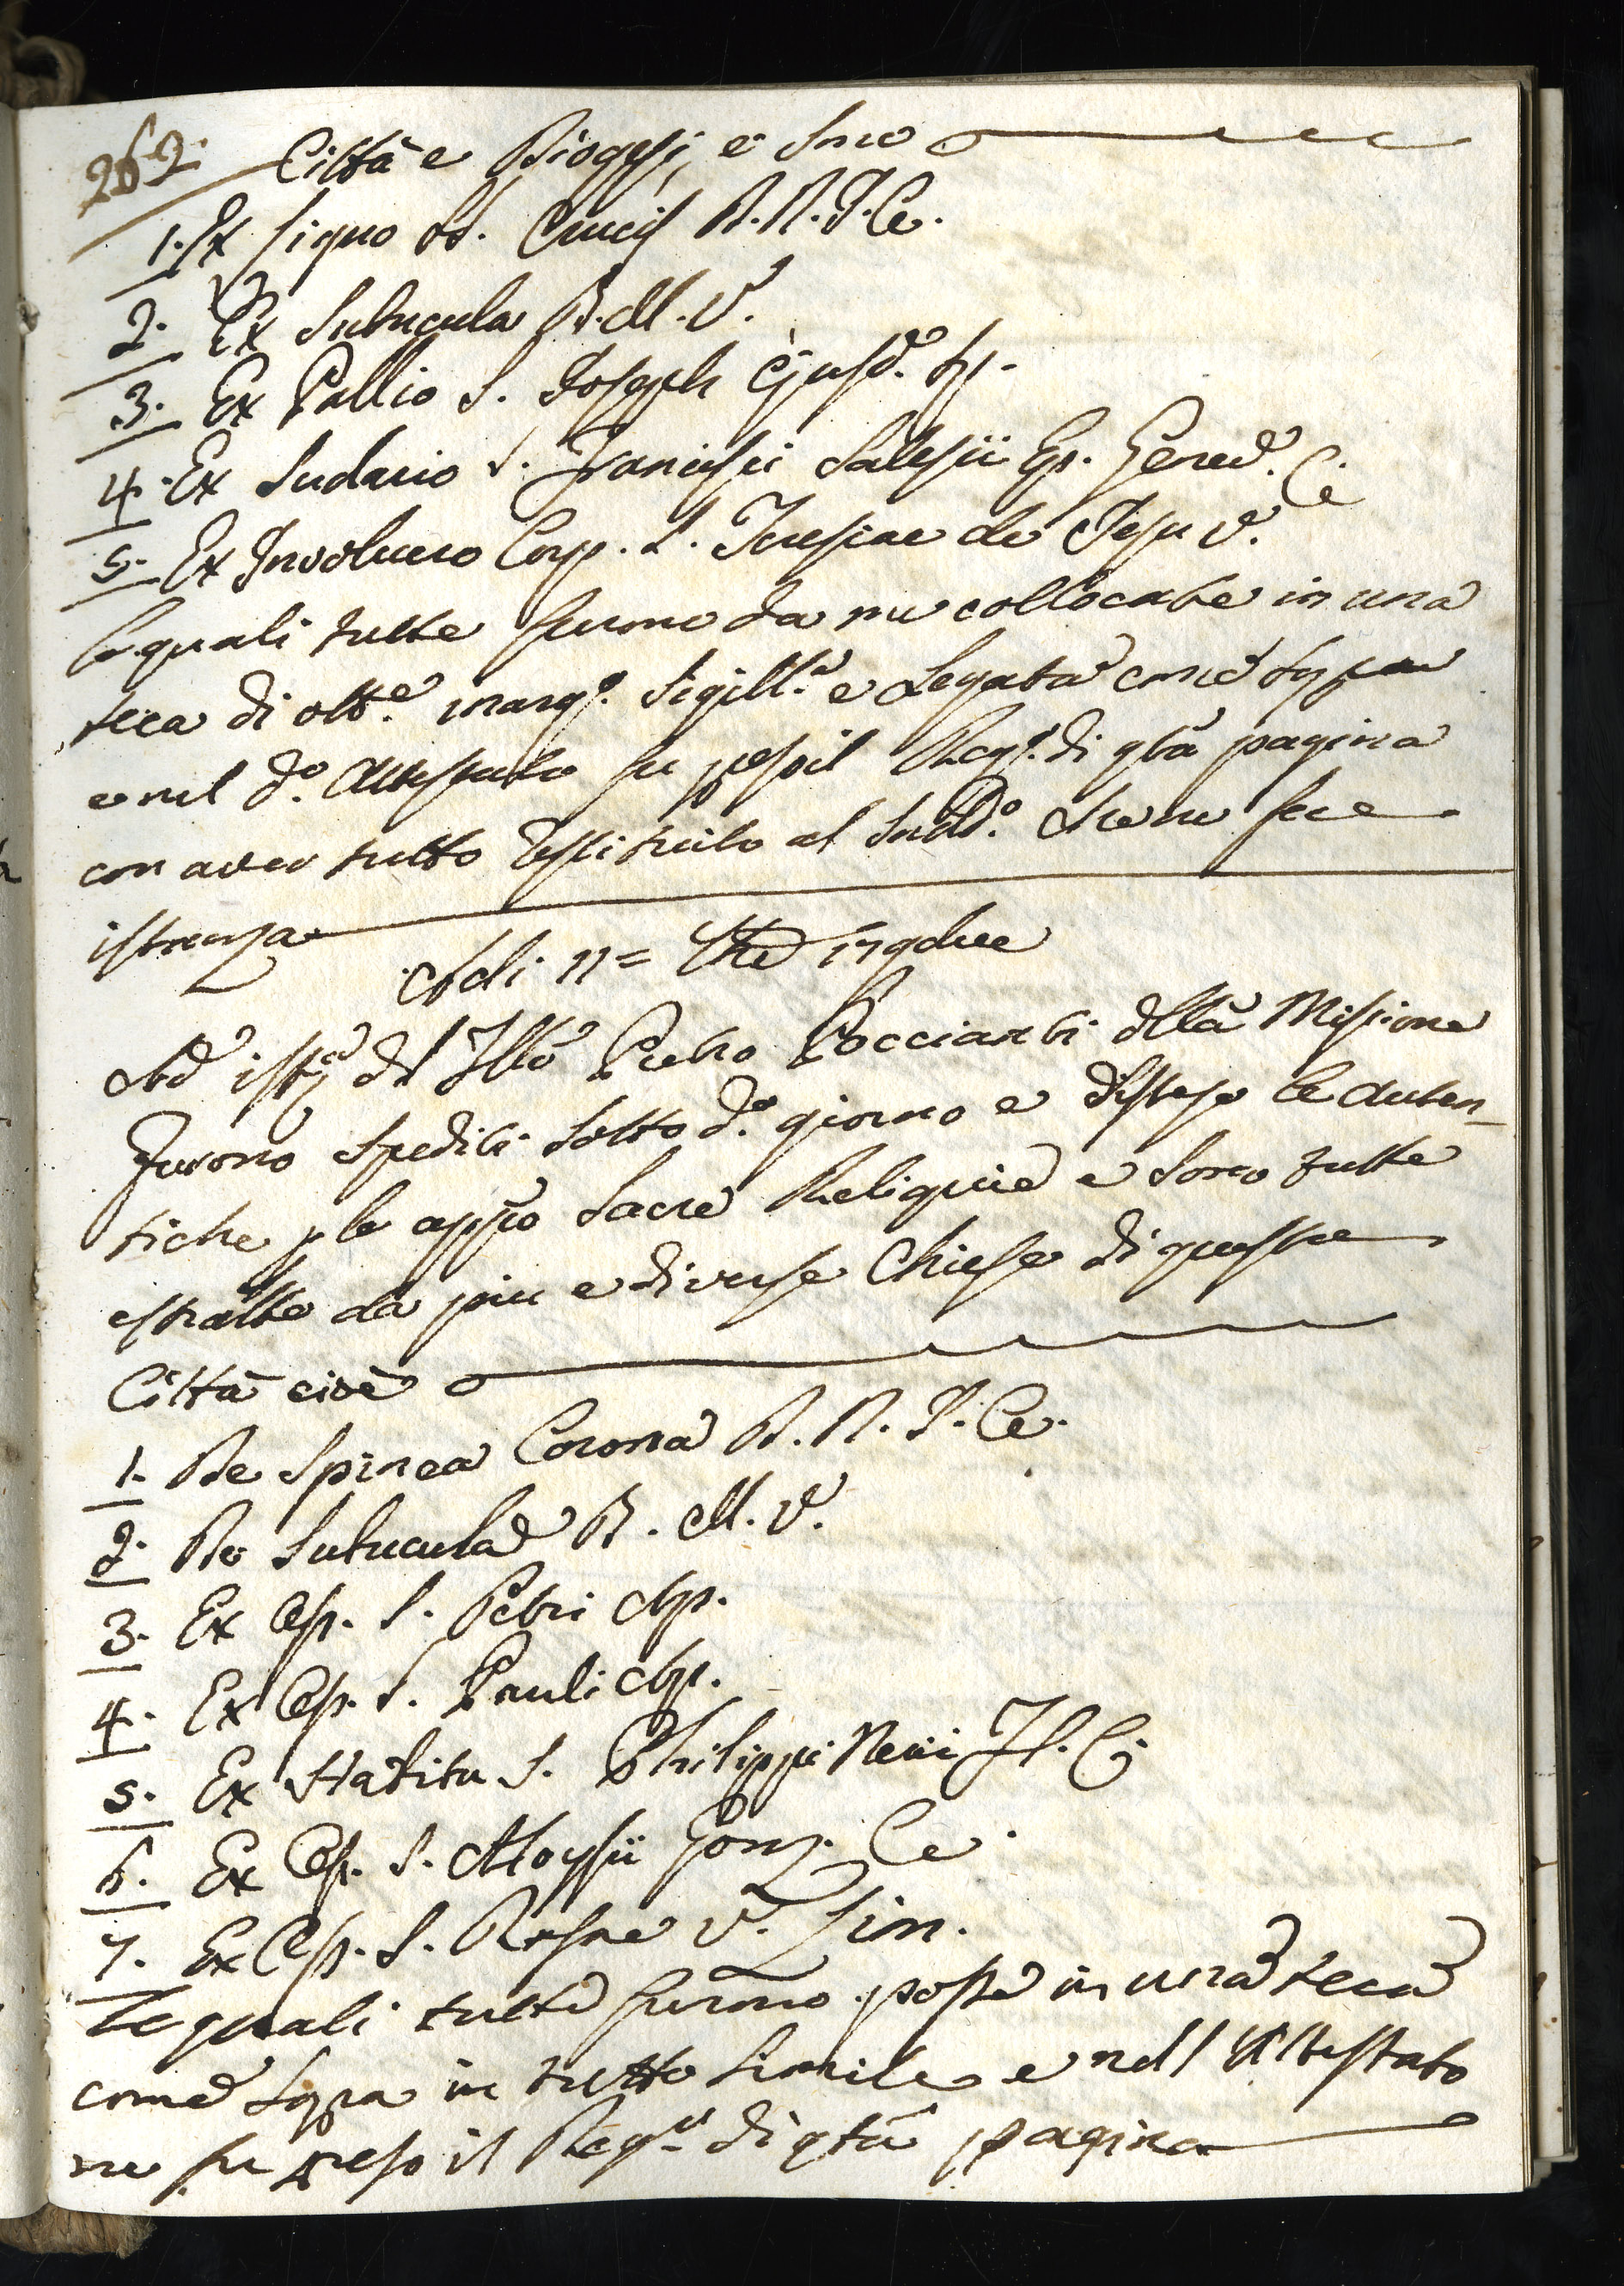 262. Città e Diogesi, e sono
1. Ex Ligno SS. Crucis D. N. J. C.
2. Ex Subucula B. M. V.
3. Ex Pallio S. Joseph ejusd. Sp.
4. Ex Sudario S. Francisci Salesii Ep. Genev. C.
5. Ex Involucro Corp. S. Teresiae de Jesu V.
le quali tutte furono da me collocate in una
teca di ott.e inarg. sigill.a e Legata come sopra
e nel d.o Attestato fu preso il Reg. di q͞ta pagina
con aver tutto restituito al sudd.o che ne fece
istanza
Adi 11 = 1792
Ad ist͞z d͞l Ill͞o Pietro Pocciardi d͞lla Missione
furono spediti sotto d.o giorno e disteso le auten-
tiche p le app͞o Sacre Reliquie e sono tutte
estratte da piu e diverse Chiese di questa
Città cioè
1. De Spinea Corona D. N. J. C.
2. De Subucula B. M. V.
3. Ex Oss. S. Petri Ap.
4. Ex Oss. S. Pauli Ap.
5. Ex Habitu S. Philippi Nerii C.
6. Ex Oss. S. Aloysii Gonz. C.
7. Ex Oss. S. Rosae V. Lim.
Le quali tutte furono poste in una teca
come sopra in tutto simile e nell Attestato
ne fu preso il Reg.o di q͞ta pagina